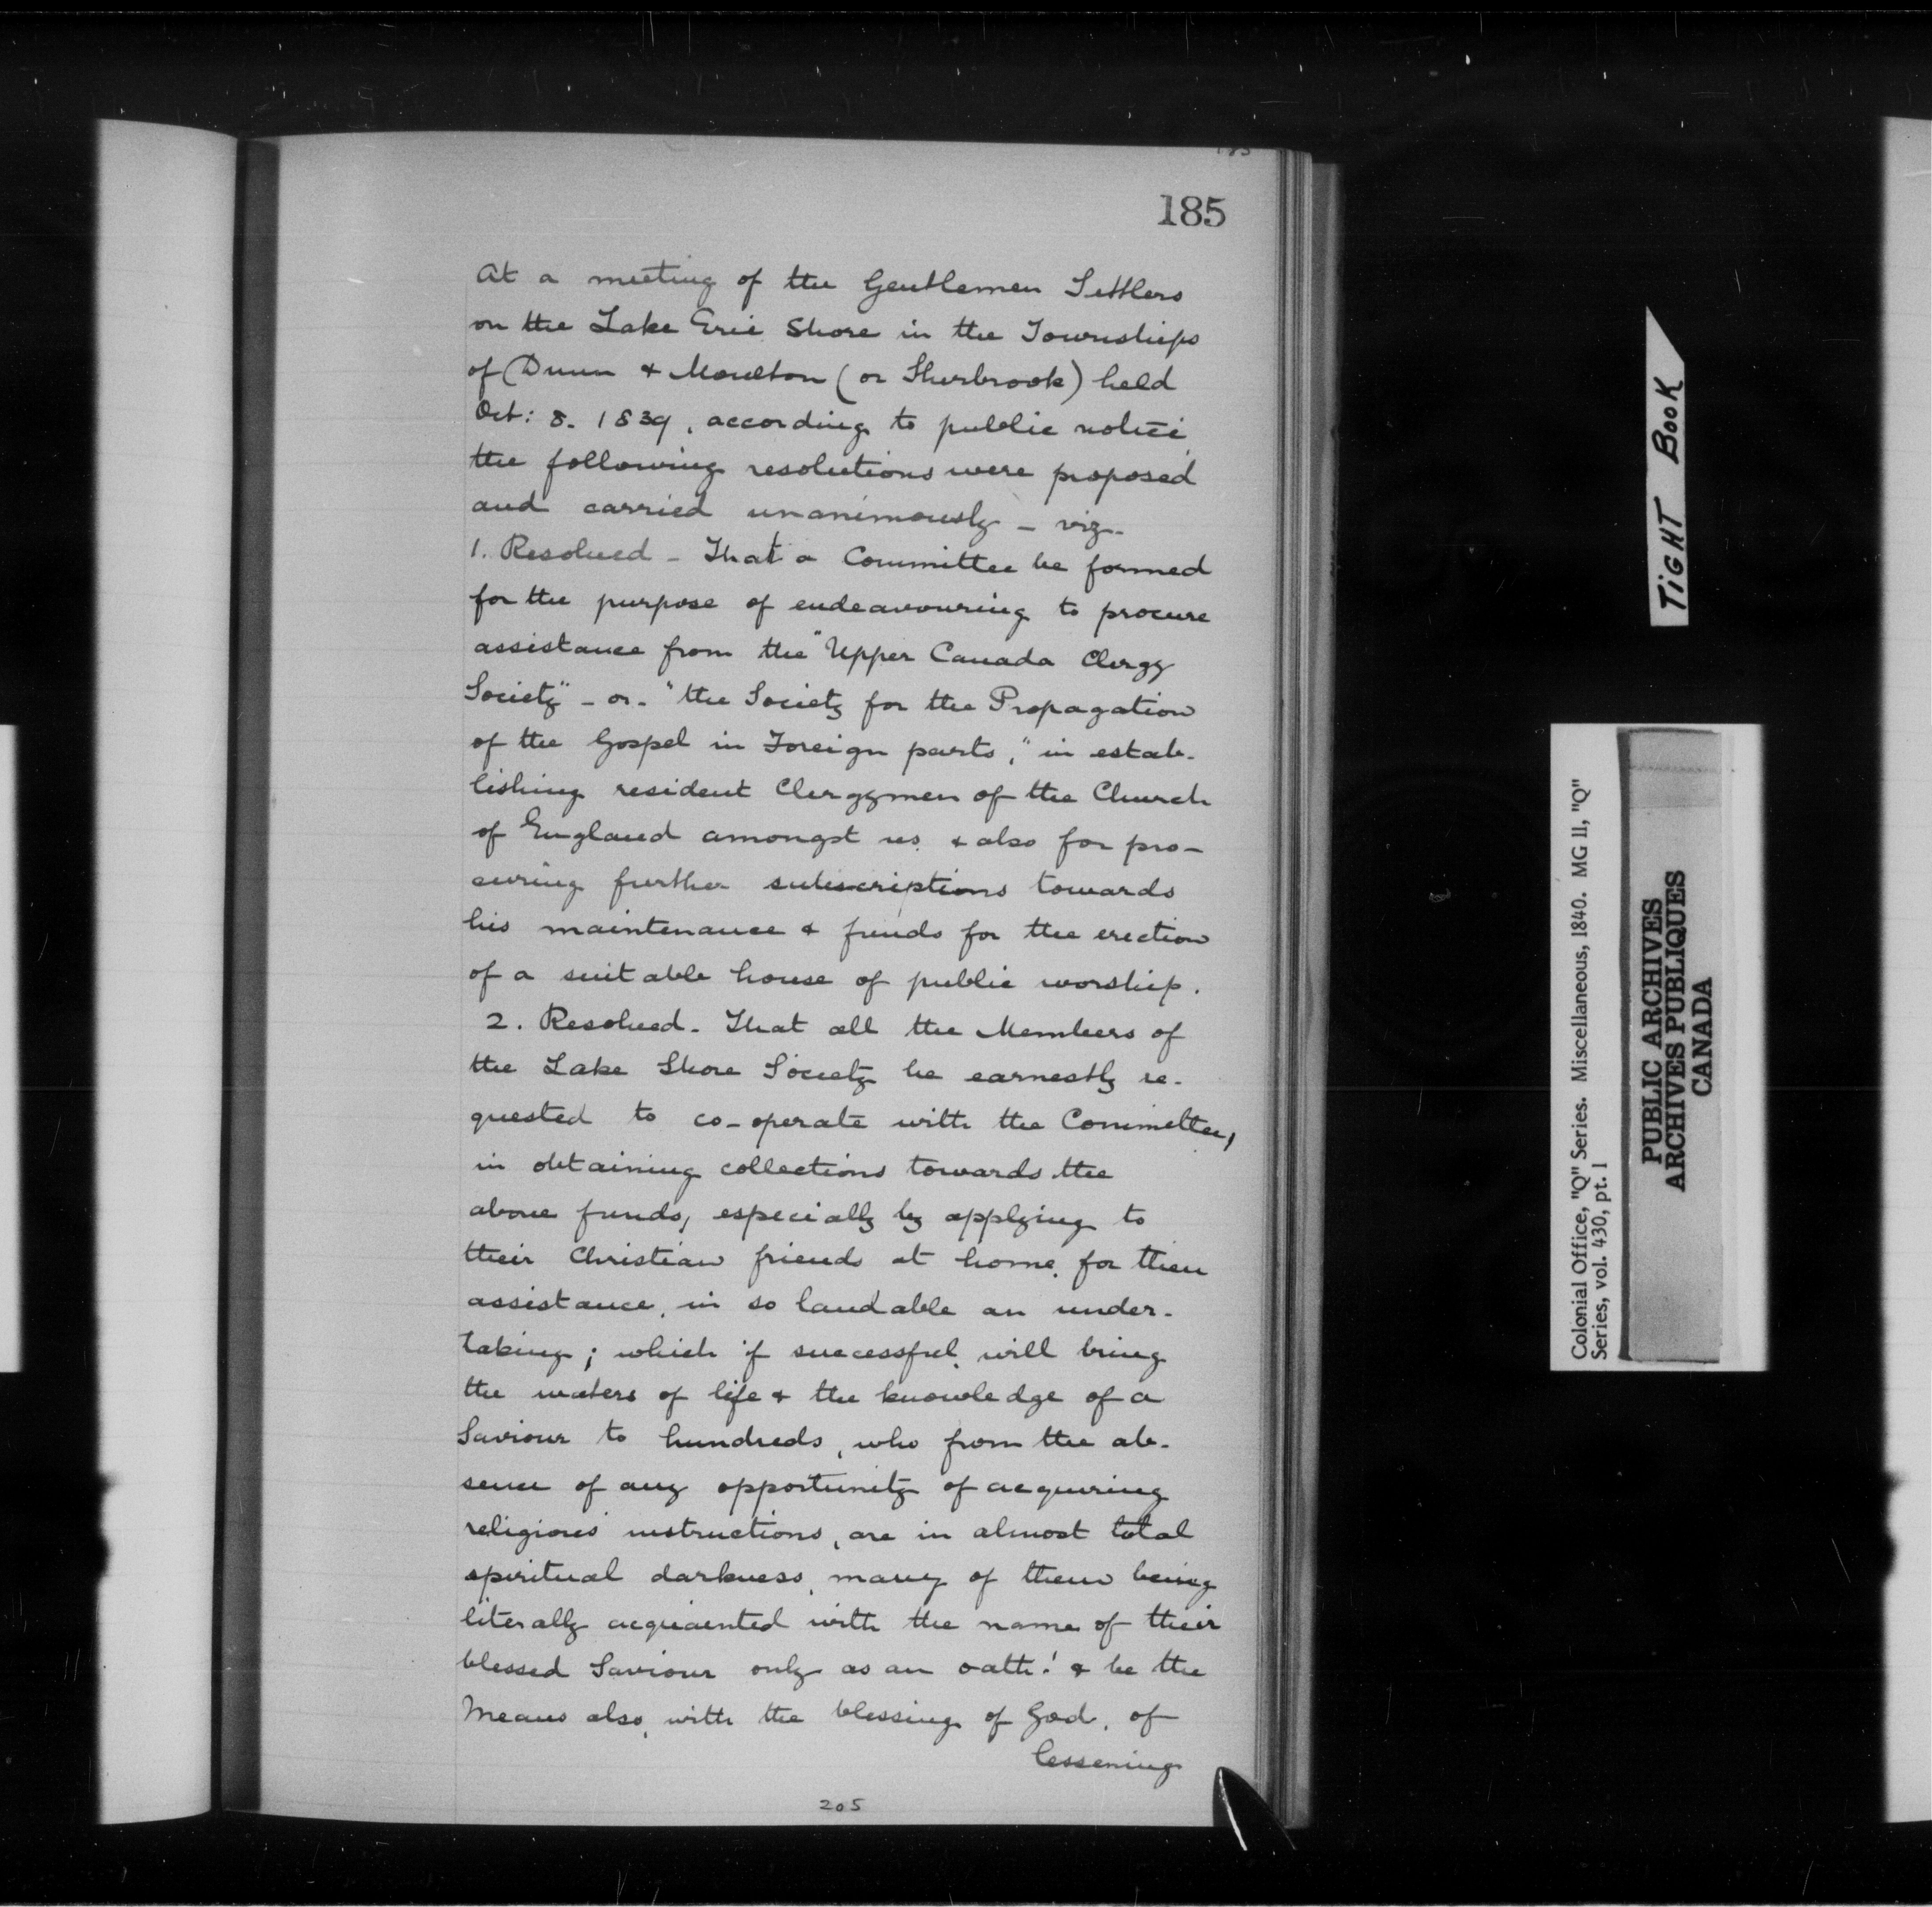 185
At a meeting of the Gentlemen Settlers
on the Lake Erie Shore in the Townships
of Dunn & Moulton (or Sherbrook) held
Oct: 8. 1839, according to public notice
the following resolutions were proposed
and carried unanimously - viz-
1. Resolved - That a Committee be formed
for the purpose of endeavouring to procure
assistance from the "Upper Canada Clergy
Society" - or - "the Society for the Propagation
of the Gospel in Foreign parts," in estab-
lishing resident Clergymen of the Church
of England amongst us & also for pro-
curing further subscriptions towards
his maintenance & funds for the erection
of a suitable house of public worship.
2. Resolved - That all the Members of
the Lake Shore Society be earnestly re-
quested to co-operate with the Committee,
in obtaining collections towards the
above funds, especially by applying to
their Christian friends at home, for their
assistance, in so laudable an under-
taking; which if successful, will bring
the waters of life & the knowledge of a
Saviour to hundreds, who from the ab-
sence of any opportunity of acquiring
religious instructions, are in almost total
spiritual darkness, many of them being
literally acquainted with the name of their
blessed Saviour only as an oath! & be the
Means also, with the blessing of God, of
lessening
205
TIGHT BOOK
Colonial Office, "Q" Series. Miscellaneous, 1840. MG 11, "Q"
Series, vol. 430, pt. 1
PUBLIC ARCHIVES
ARCHIVES PUBLIQUES
CANADA